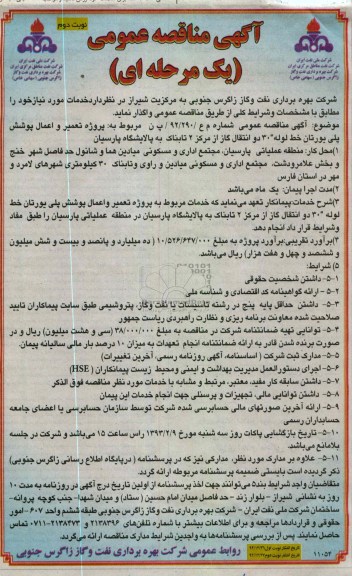 نوبت دوم
آگهی مناقصه عمومی
(یک مرحله ای)
شرکت ملی نفت ایران
شرکت نفت مناطق مرکزی ایران
شرکت بهره برداری نفت و گاز زاگرس جنوبی (سهامی خاص)
شرکت بهره برداری نفت وگاز زاگرس جنوبی به مرکزیت شیراز در نظرداردخدمات مورد نیازخود را
مطابق با مشخصات وشرایط کلی از طریق مناقصه عمومی واگذار نماید.
موضوع: آگهی مناقصه عمومی شماره م ع /۹۲/۲۹۰ پ ن مربوط به: پروژه تعمیر و اعمال پوشش
پلی یورتان خط لوله "۳۰ دو انتقال گاز از مرکز ۲ تابناک به پالایشگاه پارسیان
۱)محل کار: منطقه عملیاتی پارسیان، مجتمع اداری و مسکونی میادین هما و شانول حد فاصل شهر خنج
و بخش علامرودشت، مجتمع اداری و مسکونی میادین و راوی وتابناک ۳۰ کیلومتری شهرهای لامرد و
مهر در استان فارس
۲)مدت اجرا پیمان: یک ماه می‌باشد
۳)شرح خدمات:پیمانکار تعهد می‌نماید که خدمات مربوط به پروژه تعمیر واعمال پوشش پلی یورتان خط
لوله "۳۰ دو انتقال گاز از مرکز ۲ تابناک به پالایشگاه پارسیان در منطقه عملیاتی پارسیان را طبق مفاد
وشرایط قرار داد انجام دهد.
۴)برآورد تقریبی:برآورد پروژه به مبلغ ۱۰/۵۲۶/۶۳۷/۰۰۰ ( ده میلیارد و پانصد و بیست و شش میلیون
و ششصد و چهل و هفت هزار) ریال می‌باشد.
۵) شرایط:
۵-۱- داشتن شخصیت حقوقی
۵-۲- ارائه گواهینامه کد اقتصادی و شناسه ملی
۵-۳- داشتن حداقل پایه پنج در رشته تاسیسات یا نفت وگاز، پتروشیمی طبق سایت پیمانکاران تایید
صلاحیت شده معاونت برنامه ریزی و نظارت راهبردی ریاست جمهور
۵-۴- توانایی تهیه ضمانتنامه شرکت در مناقصه به مبلغ ۳۸/۰۰۰/۰۰۰ (سی و هشت میلیون) ریال و در
صورت برنده شدن قادر به ارائه ضمانتنامه انجام تعهدات به میزان ۱۰ درصد بار مالی سالیانه پیمان.
۵-۵- مدارک ثبت شرکت ( اساسنامه، آگهی روزنامه رسمی، آخرین تغییرات)
۵-۶- اجرای دستورالعمل مدیریت بهداشت و ایمنی ومحیط زیست پیمانکاران ( HSE)
۵-۷- داشتن سابقه کار مفید، معتبر، مرتبط و مشابه با خدمات مورد نظر مناقصه فوق الذکر
۵-۸- داشتن توانایی مالی، تجهیزات و پرسنلی جهت انجام خدمات این پیمان
۵-۹- ارائه آخرین صورتهای مالی حسابرسی شده شرکت توسط سازمان حسابرسی یا اعضای جامعه
حسابداران رسمی
۵-۱۰- تاریخ بازگشایی پاکات روز سه شنبه مورخ ۱۳۹۳/۲/۹ راس ساعت ۱۵ می‌باشد و شرکت در جلسه
بلامانع می‌باشد.
۵-۱۱- علاوه بر مدارک مورد نظر، مدارکی نیز که در پرسشنامه ( درپایگاه اطلاع رسانی زاگرس جنوبی)
ذکر گردیده است بایستی ضمیمه پرسشنامه مربوطه ارائه گردد.
متقاضیان واجد شرایط بنده می‌توانند جهت اخذ پرسشنامه از اولین تاریخ درج آگهی در روزنامه به مدت ۱۰
روز به نشانی شیراز - بلوار زند - حد فاصل میدان امام حسین ( ستاد) و میدان شهدا- جنب کوچه پروانه-
ساختمان شرکت ملی نفت ایران - شرکت بهره برداری نفت وگاز زاگرس جنوبی طبقه ششم واحد ۶۰۷ -امور
حقوقی و قراردادها مراجعه و برای اطلاعات بیشتر با شماره تلفن‌های ۲۱۳۸۳۹۶ و ۲۱۳۸۴۷۳-۰۷۱۱ تماس
حاصل نمایند. پس از بررسی پرسشنامه‌ها به واجدین شرایط مدارک مناقصه ارائه می‌گردد.
روابط عمومی شرکت بهره برداری نفت وگاز زاگرس جنوبی
۱۱۰۵۲